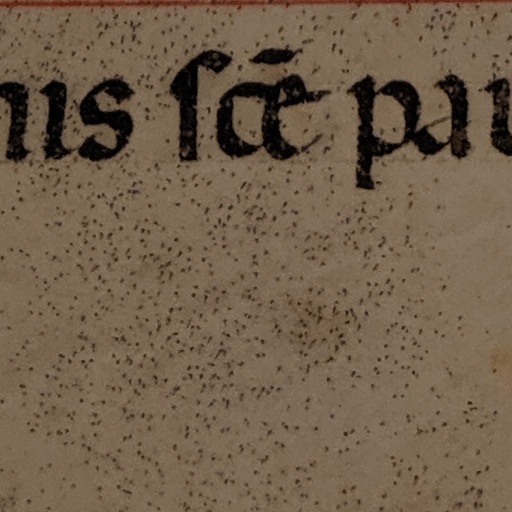 nis sc̄e pau